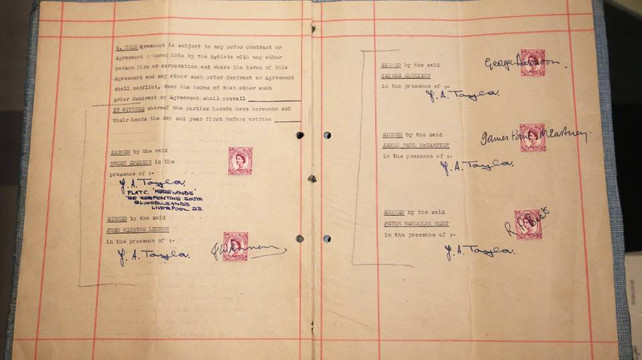 THIS Agreement is subject to any prior Contract or
Agreement entered into by the Artists with any other
person firm or corporation and where the terms of this
Agreement and any other such prior Contract or Agreement
shall conflict, then the terms of that other such
prior Contract or Agreement shall prevail
IN WITNESS whereof the parties hereto have hereunto set
their hands the day and year first before written
SIGNED by the said
BRIAN EPSTEIN in the
presence of :-
J. A. Taylor
FLAT C.
LIVERPOOL 22
SIGNED by the said
JOHN WINSTON LENNON
in the presence of :-
J. A. Taylor
SIGNED by the said
GEORGE HARRISON
in the presence of :-
George Harrison
J. A. Taylor
SIGNED by the said
JAMES PAUL McCARTNEY
in the presence of :-
James Paul McCartney
J. A. Taylor
SIGNED by the said
PETER RANDOLPH BEST
in the presence of :-
J. A. Taylor